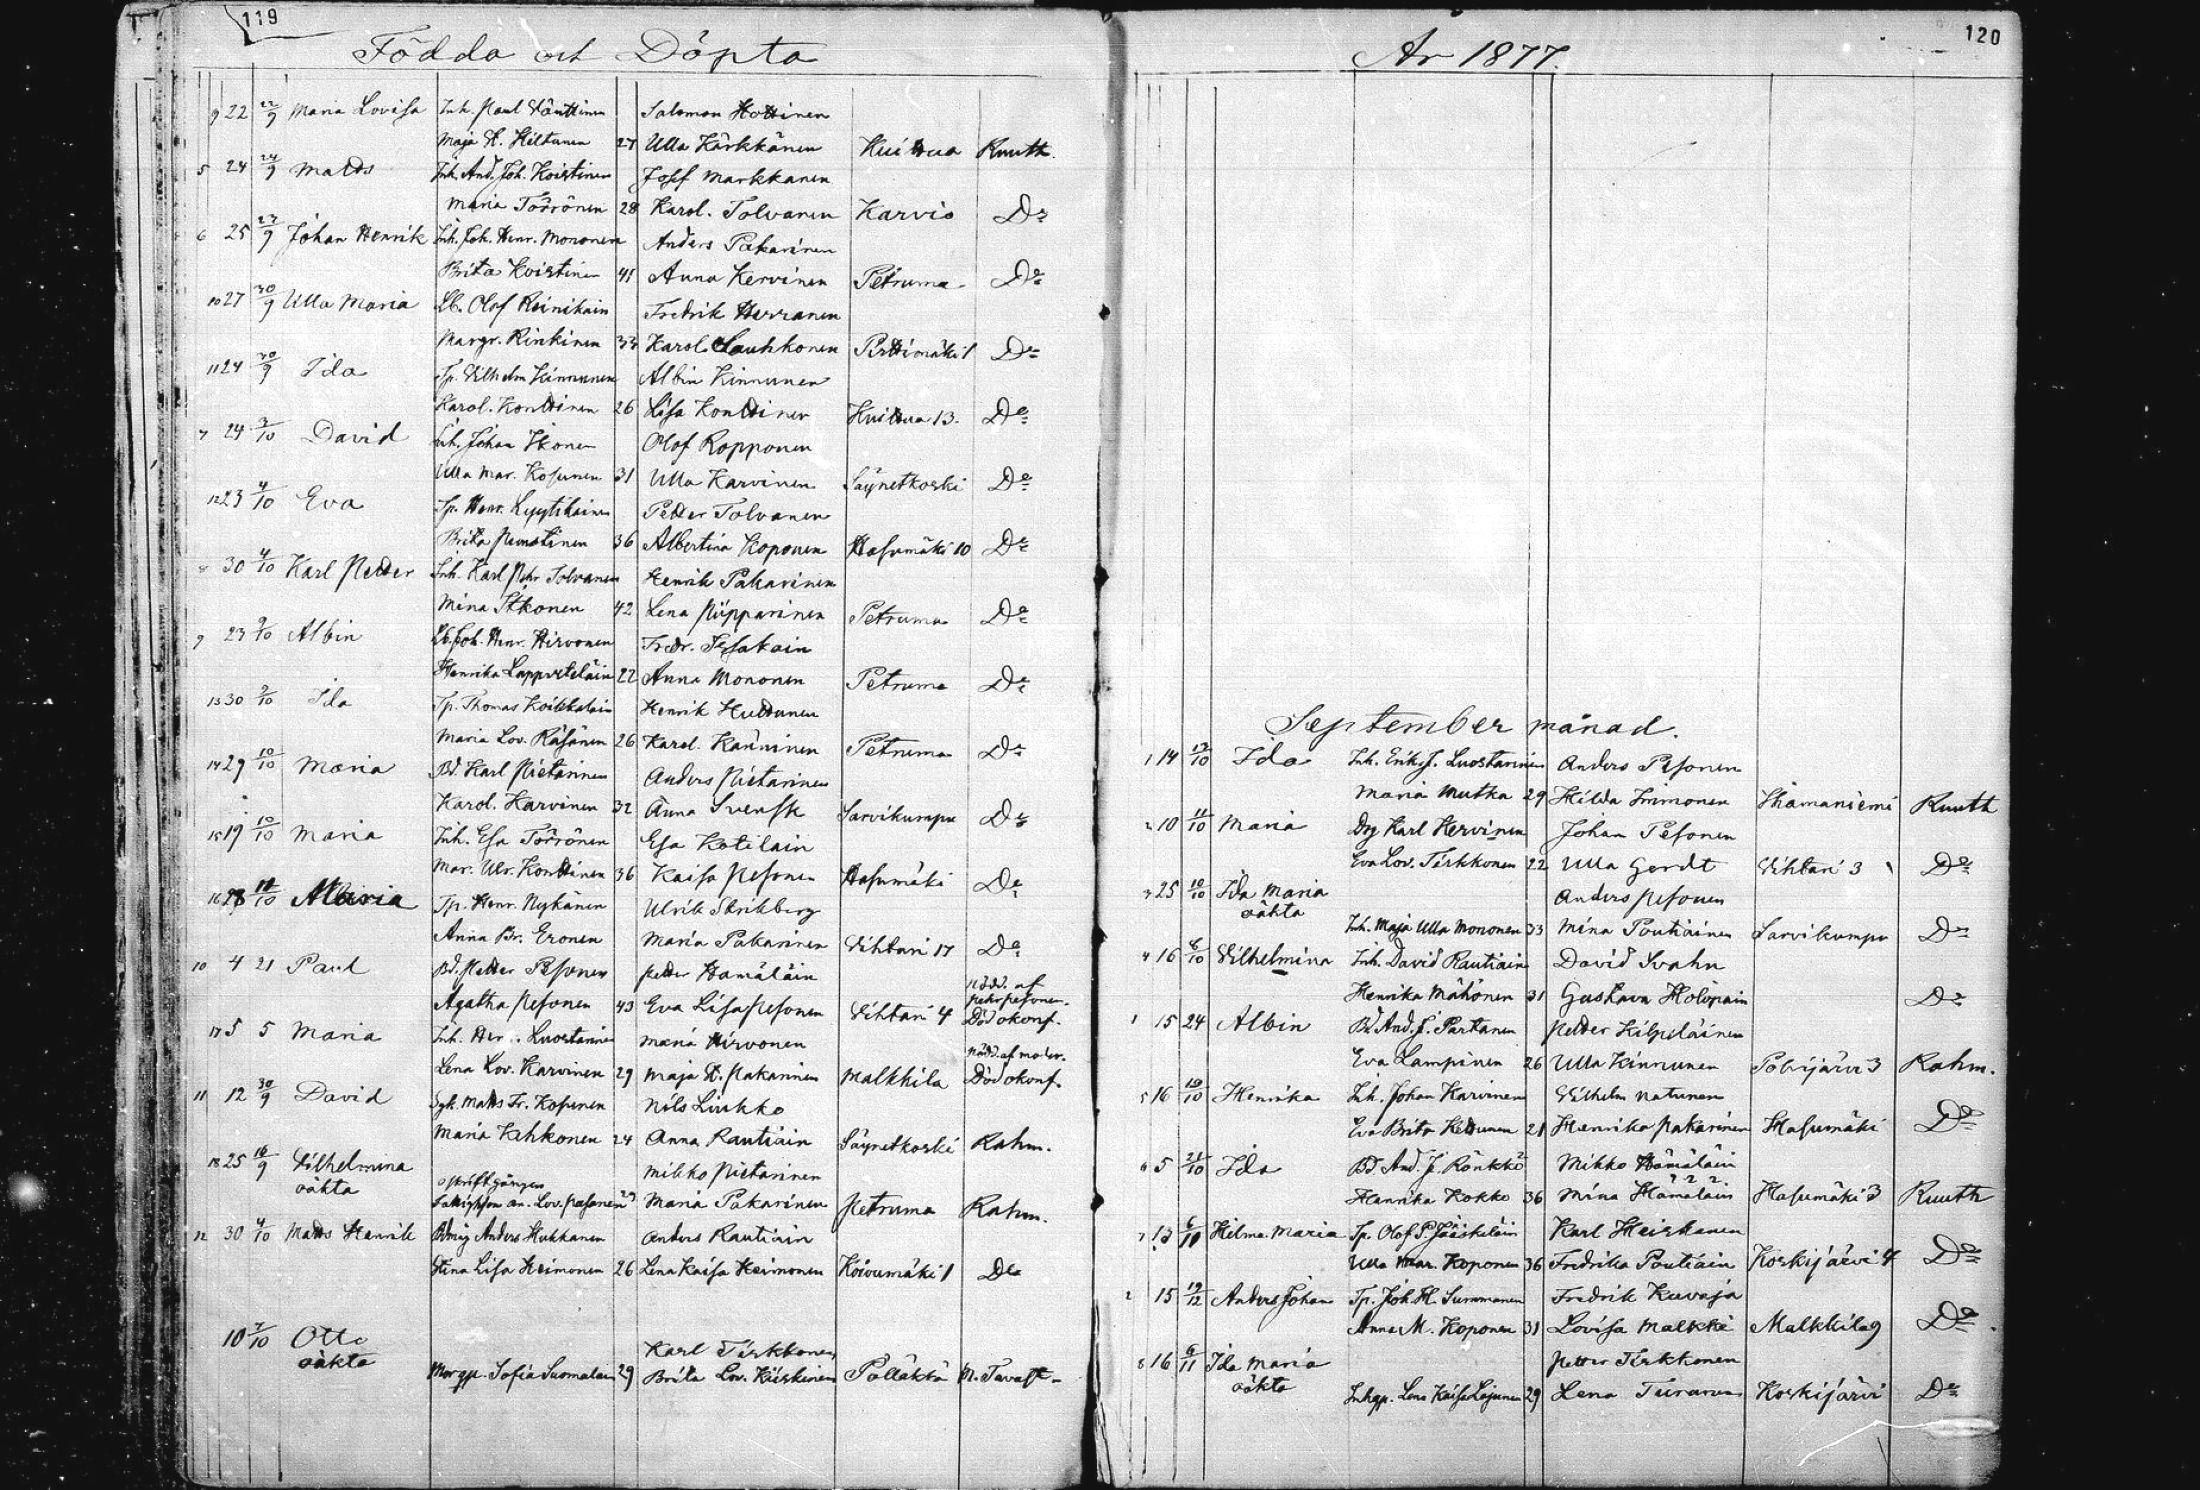 119
Födda och Döpta
9 22 22/9 Maria Lovisa Inh. Paul Väuttinen Salomon Hottinen
Maja K. Hiltunen 27 Ulla Kärkkänen Huittua Ruuth.
5 24 24/9 Matts Inh. And. Joh. Koistinen Josef Markkanen
Maria Törrönen 28 Karol. Tolvanen Karvio Do
6 25 27/9 Johan Henrik Inh. Joh. Henr. Mononen Anders Pakarinen
Brita Koistinen 41 Anna Kervinen Petruma Do
10 27 30/9 Ulla Maria Lb. Olof Reinikain Fredrik Herranen
Margr. Rinkinen 33 Karol. Lauhkonen Pirttimäki 1 Do
11 24 30/9 Ida Tp. Vilhelm Kinnunen Albin Kinnunen
Karol. Konttinen 26 Lisa Konttinen Huittua 13. Do
7 24 3/10 David Inh. Johan Ikonen Olof Ropponen
Ulla Mar. Kosunen 31 Ulla Karvinen Säynetkoski Do
12 23 4/10 Eva Tp. Henr. Lyytikäinen Petter Tolvanen
Brita 36 Albertina Koponen Hasumäki 10 Do
8 30 4/10 Karl Petter Inh. Karl Pehr Tolvanen Henrik Pakarinen
Mina Itkonen 42 Lena Piipparinen Petruma Do
9 23 9/10 Albin Lb. Joh. Henr. Hirvonen Fredr.
Henrika Lappveteläin 22 Anna Mononen Petruma Do
13 30 9/10 Ida Tp. Thomas Koikkalain Henrik Huttunen
Maria Lov. Räsänen 26 Karol. Kanninen Petruma Do
14 29 10/10 Maria Bd. Karl Pietarinen Anders Pietarinen
Karol. Karvinen 32 Anna Svensk Sarvikumpu Do
15 19 10/10 Maria Inh. Esa Törrönen Esa Kotilain
Mar. Ulr. Konttinen 36 Kaisa Pesonen Hasumäki Do
16 Maria Tp. Henr. Nykänen Ulrik Skrikberg
Anna Br. Eronen Maria Pakarinen Vihtari 17 Do
10 4 21 Paul Bd. Petter Pesonen Petter Hämäläin
Agatha Pesonen 43 Eva Lisa Pesonen Vihtari 4 nödd. af Pehr Pesonen. Död okonf.
17 5 5 Maria Inh. Luostarinen Maria Hirvonen
Lena Lov. Karvinen 29 Maja K. Pakarinen Malkkila nödd. af moder. Död okonf.
11 12 30/9 David Matts Fr. Kosunen Nils Liukko
Maria Kehkonen 24 Anna Rautiain Säynetkoski Rahm.
18 25 16/9 Vilhelmina Mikko Pietarinen
oäkta an. Lov. Pasanen 29 Maria Pakarinen Petruma Rahm.
12 30 4/10 Matts Henrik Anders Hukkanen Anders Rautiain
Stina Lisa Heimonen 26 Lena Kaisa Heimonen Koivumäki 1 Do
10 7/10 Otto Karl Tirkkonen
oäkta Sofia Suomalain 29 Brita Lov. Kiiskinen Pölläkkä N. Tavast-
120
År 1877.
September månad.
1 14 Ida Inh. Erik J. Luostarinen Anders Pesonen
Maria Mutka 29 Hilda Immonen Ihamaniemi Ruuth
2 10 11/10 Maria Drg Karl Kervinen Johan Pesonen
Eva Lov. Tirkkonen 22 Ulla Gerdt Vihtari 3 Do
3 25 10/10 Ida Maria Anders Pesonen
oäkta Inh. Maja Ulla Mononen 33 Mina Poutiainen Sarvikumpu Do
4 16 8/10 Vilhelmina Inh. David Rautiain David Svahn
Henrika Mähönen 31 Gustava Holopain Do
1 15 24 Albin Bd. And. J. Partanen Petter Kilpeläinen
Eva Lampinen 26 Ulla Kinnunen Polvijärvi 3 Rahm.
5 16 19/10 Henrika Inh. Johan Karvinen Vilhelm Natunen
Eva Brita Kettunen 21 Henrika Pakarinen Hasumäki Do
6 5 21/10 Ida Bd. And. J. Rönkkö Mikko Hämäläin
Henrika Kokko 36 Mina Hämäläin Hasumäki 3 Ruuth
7 13 Helma Maria Tp. Olof P. Jääskeläin Karl Heiskanen
Ulla Mar. Koponen 36 Fredrika Poutiain Koskijärvi 4 Do
2 15 19/12 Anders Johan Tp. Joh. H. Summanen Fredrik Kuvaja
Anna M. Koponen 31 Lovisa Malkki Malkkila 9 Do
8 16 6/11 Ida Maria Petter Tirkkonen
oäkta Inhgp. Lena Kaisa Lajunen 29 Lena Turunen Koskijärvi Do